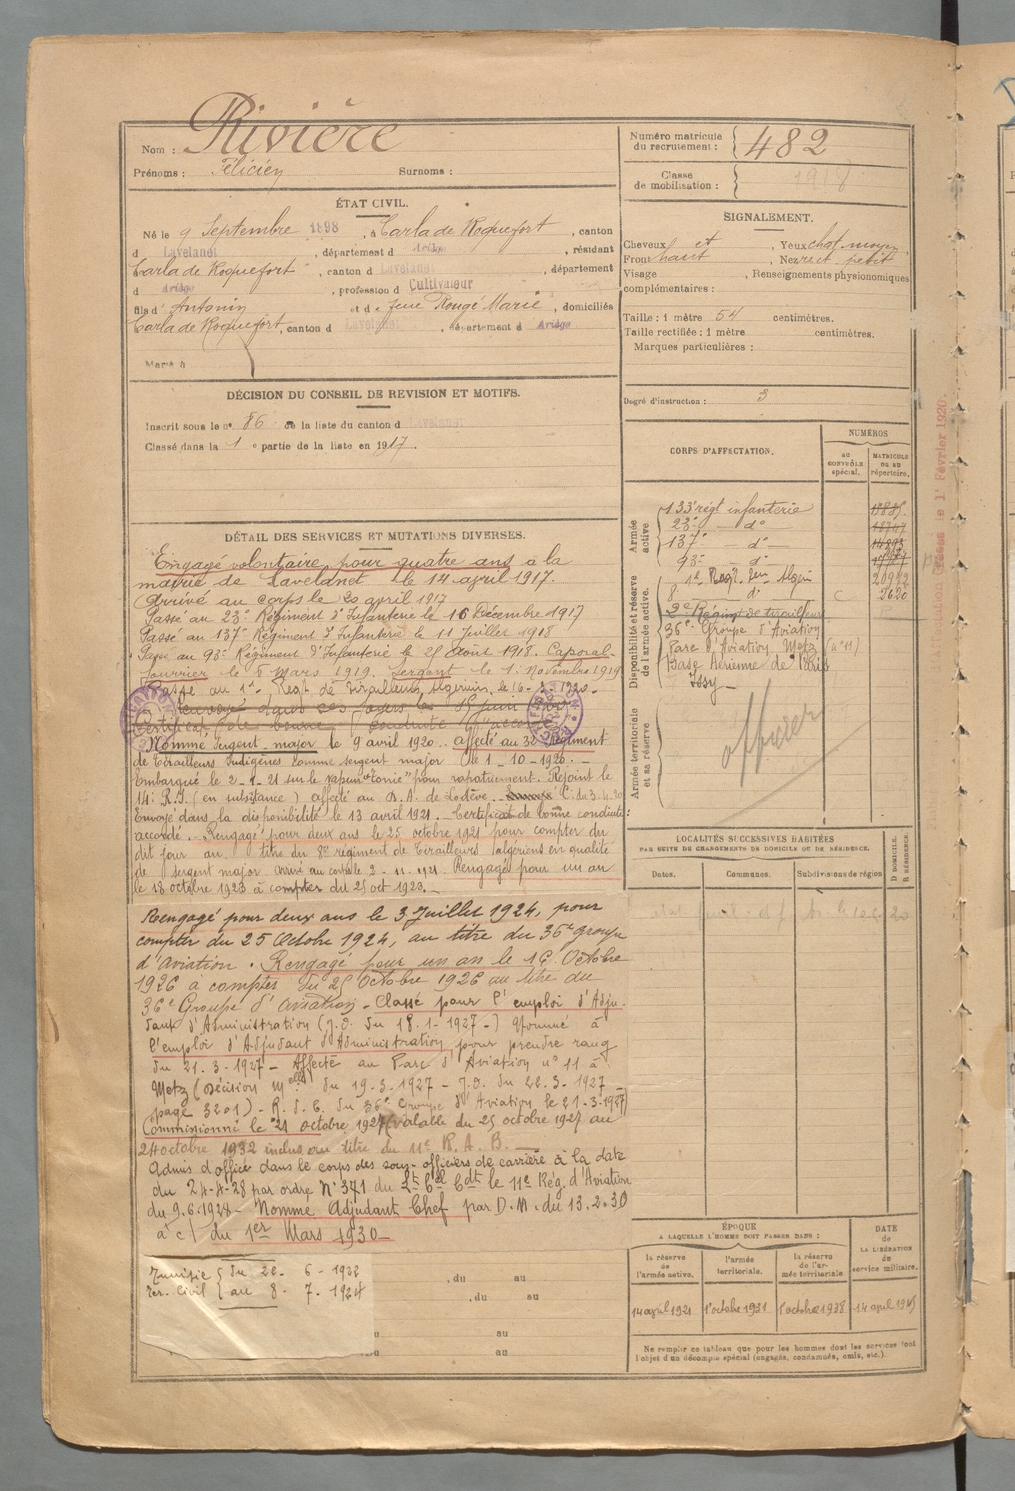 Nom : Rivière
Prénoms : Félicien Surnoms :
Numéro matricule
du recrutement : 482
Classe
de mobilisation : 1918
ÉTAT CIVIL.
Né le 9 Septembre 1898, à Carla de Roquefort, canton
d Lavelanet, département d Ariège, résidant
Carla de Roquefort, canton d Lavelanet, département
d Ariège, profession d Cultivateur
fils d' Antonin et d e feue Rougé Marie, domiciliés
Carla de Roquefort, canton d Lavelanet, département d Ariège
Marié à
SIGNALEMENT.
Cheveux et, Yeux chat. moyen
Front haut, Nez rect. petit
Visage , Renseignements physionomiques
complémentaires :
Taille : 1 mètre 54 centimètres.
Taille rectifiée : 1 mètre centimètres.
Marques particulières :
Degré d'instruction : 3
DÉCISION DU CONSEIL DE REVISION ET MOTIFS.
Inscrit sous le n° 86 de la liste du canton d Lavelanet
Classé dans la 1 e partie de la liste en 1917.
DÉTAIL DES SERVICES ET MUTATIONS DIVERSES.
Engagé volontaire pour quatre ans a la
mairie de Lavelanet le 14 april 1917.
Arrivé au corps le 20 april 1917
Passé au 23e Régiment d'Infanterie le 16 Décembre 1917
Passé au 137e Régiment d'Infanterie le 11 Juillet 1918
Passé au 93e Régiment d'Infanterie le 25 Aout 1918. Caporal-
fourrier le 6 Mars 1919. Sergent le 1. Novembre 1919
Passé au 1er Regt de Tirailleurs Algeriens le 16-3-1920-
Certificat de bonne conduite accordé
Nommé Sergent major le 9 avril 1920. affecté au 3e Régiment
de Tirailleurs Indigènes comme sergent major le 1-10-1920.-
Embarqué le 2-1-21 sur le vapeur pour rapatriement. Rejoint le
14e R.I. (en subsistance) affecté au D.A. de Lodève. C. du 3.4.20
Envoyé dans la disponibilité le 13 avril 1921. Certificat de bonne conduite
accordé. Rengagé pour deux ans le 25 octobre 1921 pour compter du
dit jour au titre du 8e régiment de Tirailleurs algériens en qualité
de sergent major. arrivé au corps le 2-11-1921. Rengagé pour un an
le 18 octobre 1923 à compter du 25 oct 1923.-
Rengagé pour deux ans le 3 Juillet 1924, pour
compter du 25 Octobre 1924, au titre du 36e groupe
d'aviation. Rengagé pour un an le 16 Octobre
1926 à compter du 25 Octobre 1926 au titre du
36e Groupe d'aviation - Classé pour l'emploi d'Adju-
dant d'Administration (J.O. du 18-1-1927-) Nommé à
l'emploi d'Adjudant d'Administration pour prendre rang
du 21.3.1927- Affecté au Parc d'Aviation n° 11 à
Metz (Décision Melle du 19-3-1927- J.O. du 22.3-1927
page 3201)- R.d.C. du 36e Groupe d'Aviation le 21.3.1927
Commissionné le 21 octobre 1927 (valable du 25 octobre 1927 au
24 octobre 1932 inclus au titre du 11e R.A.B.
Admis d'office dans le corps des sous-officiers de carrière à la date
du 24-4-28 par ordre N°371 du Lt Cel Cdt le 11e Rég. d'Aviation
du 9.6.1928- Nommé Adjudant Chef par D.M. du 13.2.30
à c/ du 1er Mars 1930-
Tunisie { du 22- 6-1922
Ter. Civil { au 8- 7. 1924
, du au
, du au
u au
du au
CORPS D'AFFECTATION.
NUMÉROS
AU CONTRÔLE spécial.
MATRICULE OU AU répertoire.
Armée active
133e régt infanterie
23e - d° -
137e - d° -
93e - d° -
Disponibilité et réserve de l'armée active.
1er Regt. Algér 20972
8 d° C 2620
2e Régim de tirailleurs
36e Groupe d'Aviation
Parc d'Aviation Metz (n°11)
Base Aérienne de Paris
Issy
Armée territoriale et sa réserve
officier
LOCALITÉS SUCCESSIVES HABITÉES
PAR SUITE DE CHANGEMENTS DE DOMICILE OU DE RÉSIDENCE.
Dates. Communes. Subdivisions de région
D DOMICILE. R RÉSIDENCE.
ÉPOQUE
A LAQUELLE L'HOMME DOIT PASSER DANS :
la réserve de l'armée active.
l'armée territoriale.
la réserve de l'armée territoriale
DATE de LA LIBÉRATION du service militaire.
14 april 1921 1er octobre 1931 1er octobre 1938 14 april 1945
Ne remplir ce tableau que pour les hommes dont les services font
l'objet d'un décompte spécial (engagés, condamnés, omis, etc.).